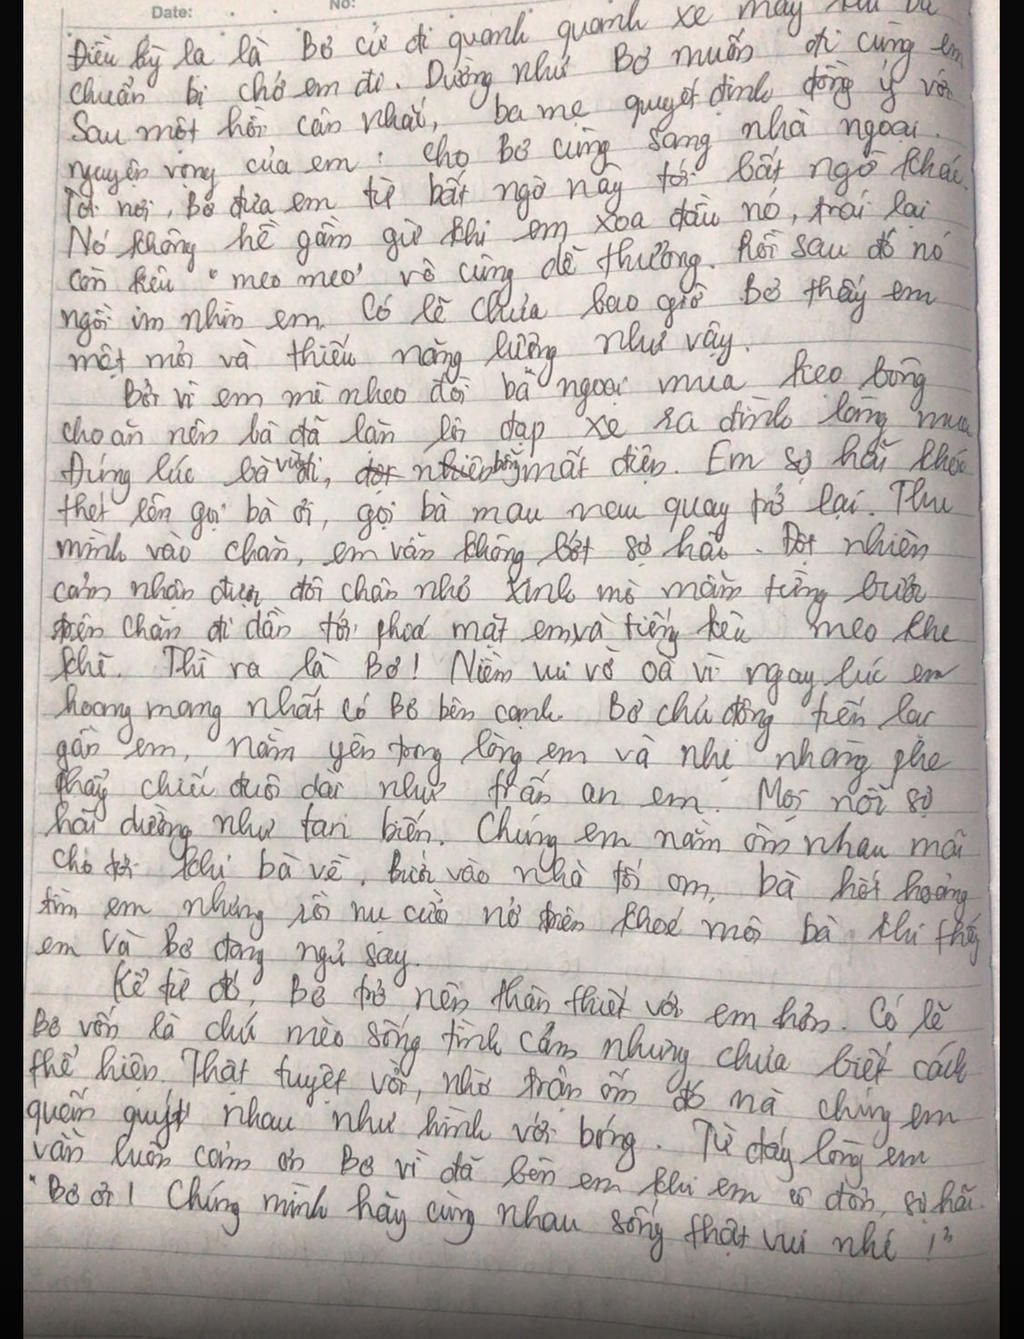 Date: No:
Điều kỳ lạ là Bơ cứ đi quanh quanh xe máy khi ba
chuẩn bị chở em đi. Dường như Bơ muốn đi cùng em
Sau một hồi cân nhắc, ba mẹ quyết định đồng ý với
nguyện vọng của em: cho Bơ cùng sang nhà ngoại.
Tới nơi, Bơ đưa em từ bất ngờ này tới bất ngờ khác.
Nó không hề gầm gừ khi em xoa đầu nó, trái lại
còn kêu "meo meo" vô cùng dễ thương. Rồi sau đó nó
ngồi im nhìn em. Có lẽ chưa bao giờ Bơ thấy em
mệt mỏi và thiếu năng lượng như vậy.
Bởi vì em mè nheo đòi bà ngoại mua kẹo bông
cho ăn nên bà đã lặn lội đạp xe ra đình làng mua
Đúng lúc bà vừa đi, đột nhiên bỗng mất điện. Em sợ hãi khóc
thét lên gọi bà ơi, gọi bà mau mau quay trở lại. Thu
mình vào chăn, em vẫn không bớt sợ hãi. Đột nhiên
cảm nhận được đôi chân nhỏ xinh mò mẫm từng bước
trên chăn đi dần tới phía mặt em và tiếng kêu meo khe
khẽ. Thì ra là Bơ! Niềm vui vỡ oà vì ngay lúc em
hoang mang nhất có Bơ bên cạnh. Bơ chủ động tiến lại
gần em, nằm yên trong lòng em và nhẹ nhàng phe
phẩy chiếc đuôi dài như trấn an em. Mọi nỗi sợ
hãi dường như tan biến. Chúng em nằm ôm nhau mãi
cho tới khi bà về. Bước vào nhà tối om, bà hốt hoảng
tìm em nhưng rồi nụ cười nở trên khoé môi bà khi thấy
em và Bơ đang ngủ say.
Kể từ đó, Bơ trở nên thân thiết với em hơn. Có lẽ
Bơ vốn là chú mèo sống tình cảm nhưng chưa biết cách
thể hiện. Thật tuyệt vời, nhờ trận ốm đó mà chúng em
quấn quýt nhau như hình với bóng. Từ đáy lòng em
vẫn luôn cảm ơn Bơ vì đã bên em khi em cô đơn, sợ hãi.
"Bơ ơi! Chúng mình hãy cùng nhau sống thật vui nhé!"